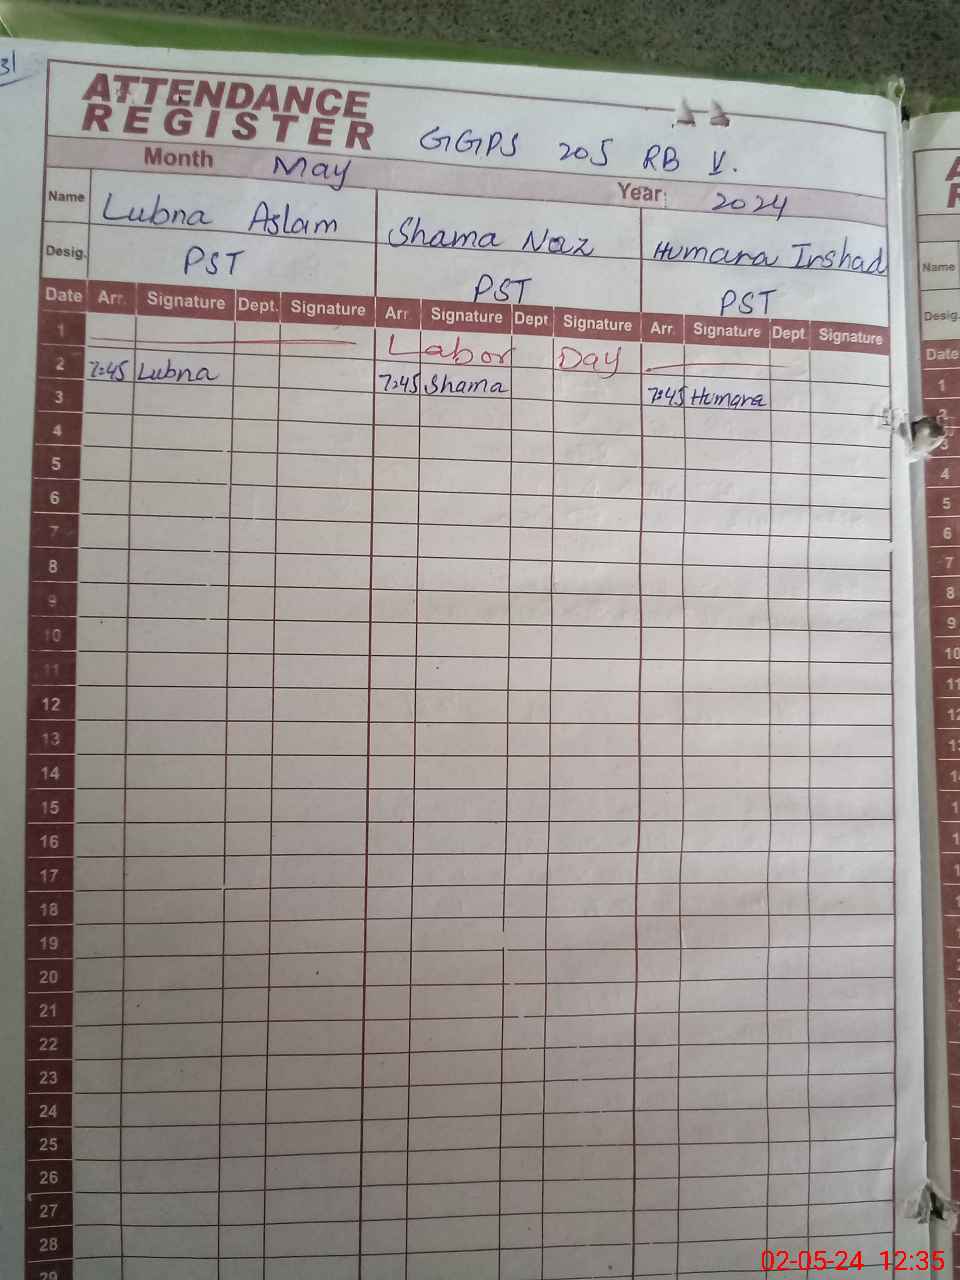 31
ATTENDANCE
REGISTER
GGPS 205 RB V.
Month May Year: 2024
Name Lubna Aslam Shama Naz Humara Irshad
Desig. PST PST PST
Date Arr. Signature Dept. Signature Arr. Signature Dept Signature Arr. Signature Dept. Signature
1 Labor Day
2 7:45 Lubna 7:45 Shama 7:45 Humara
3
4
5
6
7
8
9
10
11
12
13
14
15
16
17
18
19
20
21
22
23
24
25
26
27
28
29
Name
Desig.
Date
1
2
3
4
5
6
7
8
9
10
11
12
02-05-24 12:35